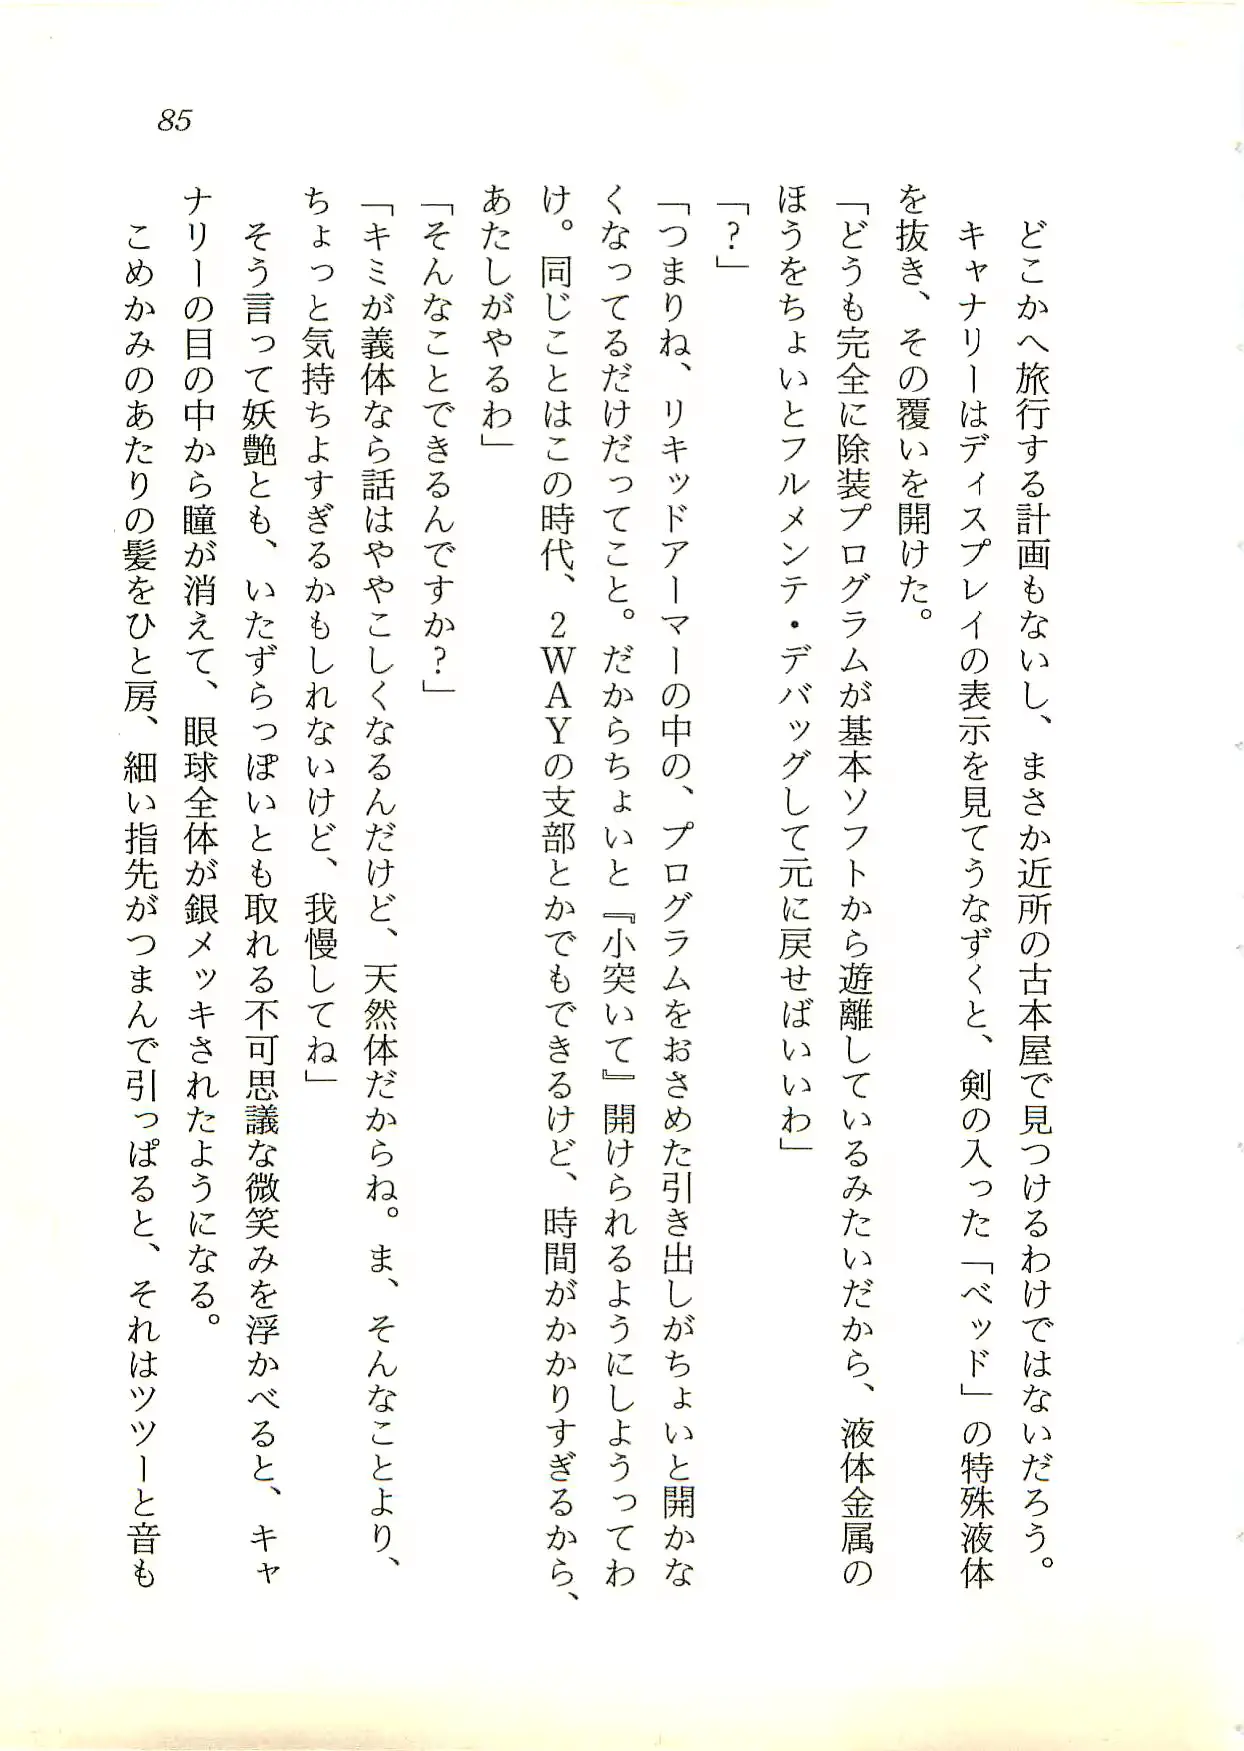 85
　どこかへ旅行する計画もないし、まさか近所の古本屋で見つけるわけではないだろう。
　キャナリーはディスプレイの表示を見てうなずくと、剣の入った「ベッド」の特殊液体
を抜き、その覆いを開けた。
「どうも完全に除装プログラムが基本ソフトから遊離しているみたいだから、液体金属の
ほうをちょいとフルメンテ・デバッグして元に戻せばいいわ」
「？」
「つまりね、リキッドアーマーの中の、プログラムをおさめた引き出しがちょいと開かな
くなってるだけだってこと。だからちょいと『小突いて』開けられるようにしようってわ
け。同じことはこの時代、２ＷＡＹの支部とかでもできるけど、時間がかかりすぎるから、
あたしがやるわ」
「そんなことできるんですか？」
「キミが義体なら話はややこしくなるんだけど、天然体だからね。ま、そんなことより、
ちょっと気持ちよすぎるかもしれないけど、我慢してね」
　そう言って妖艶とも、いたずらっぽいとも取れる不可思議な微笑みを浮かべると、キャ
ナリーの目の中から瞳が消えて、眼球全体が銀メッキされたようになる。
　こめかみのあたりの髪をひと房、細い指先がつまんで引っぱると、それはツツーと音も